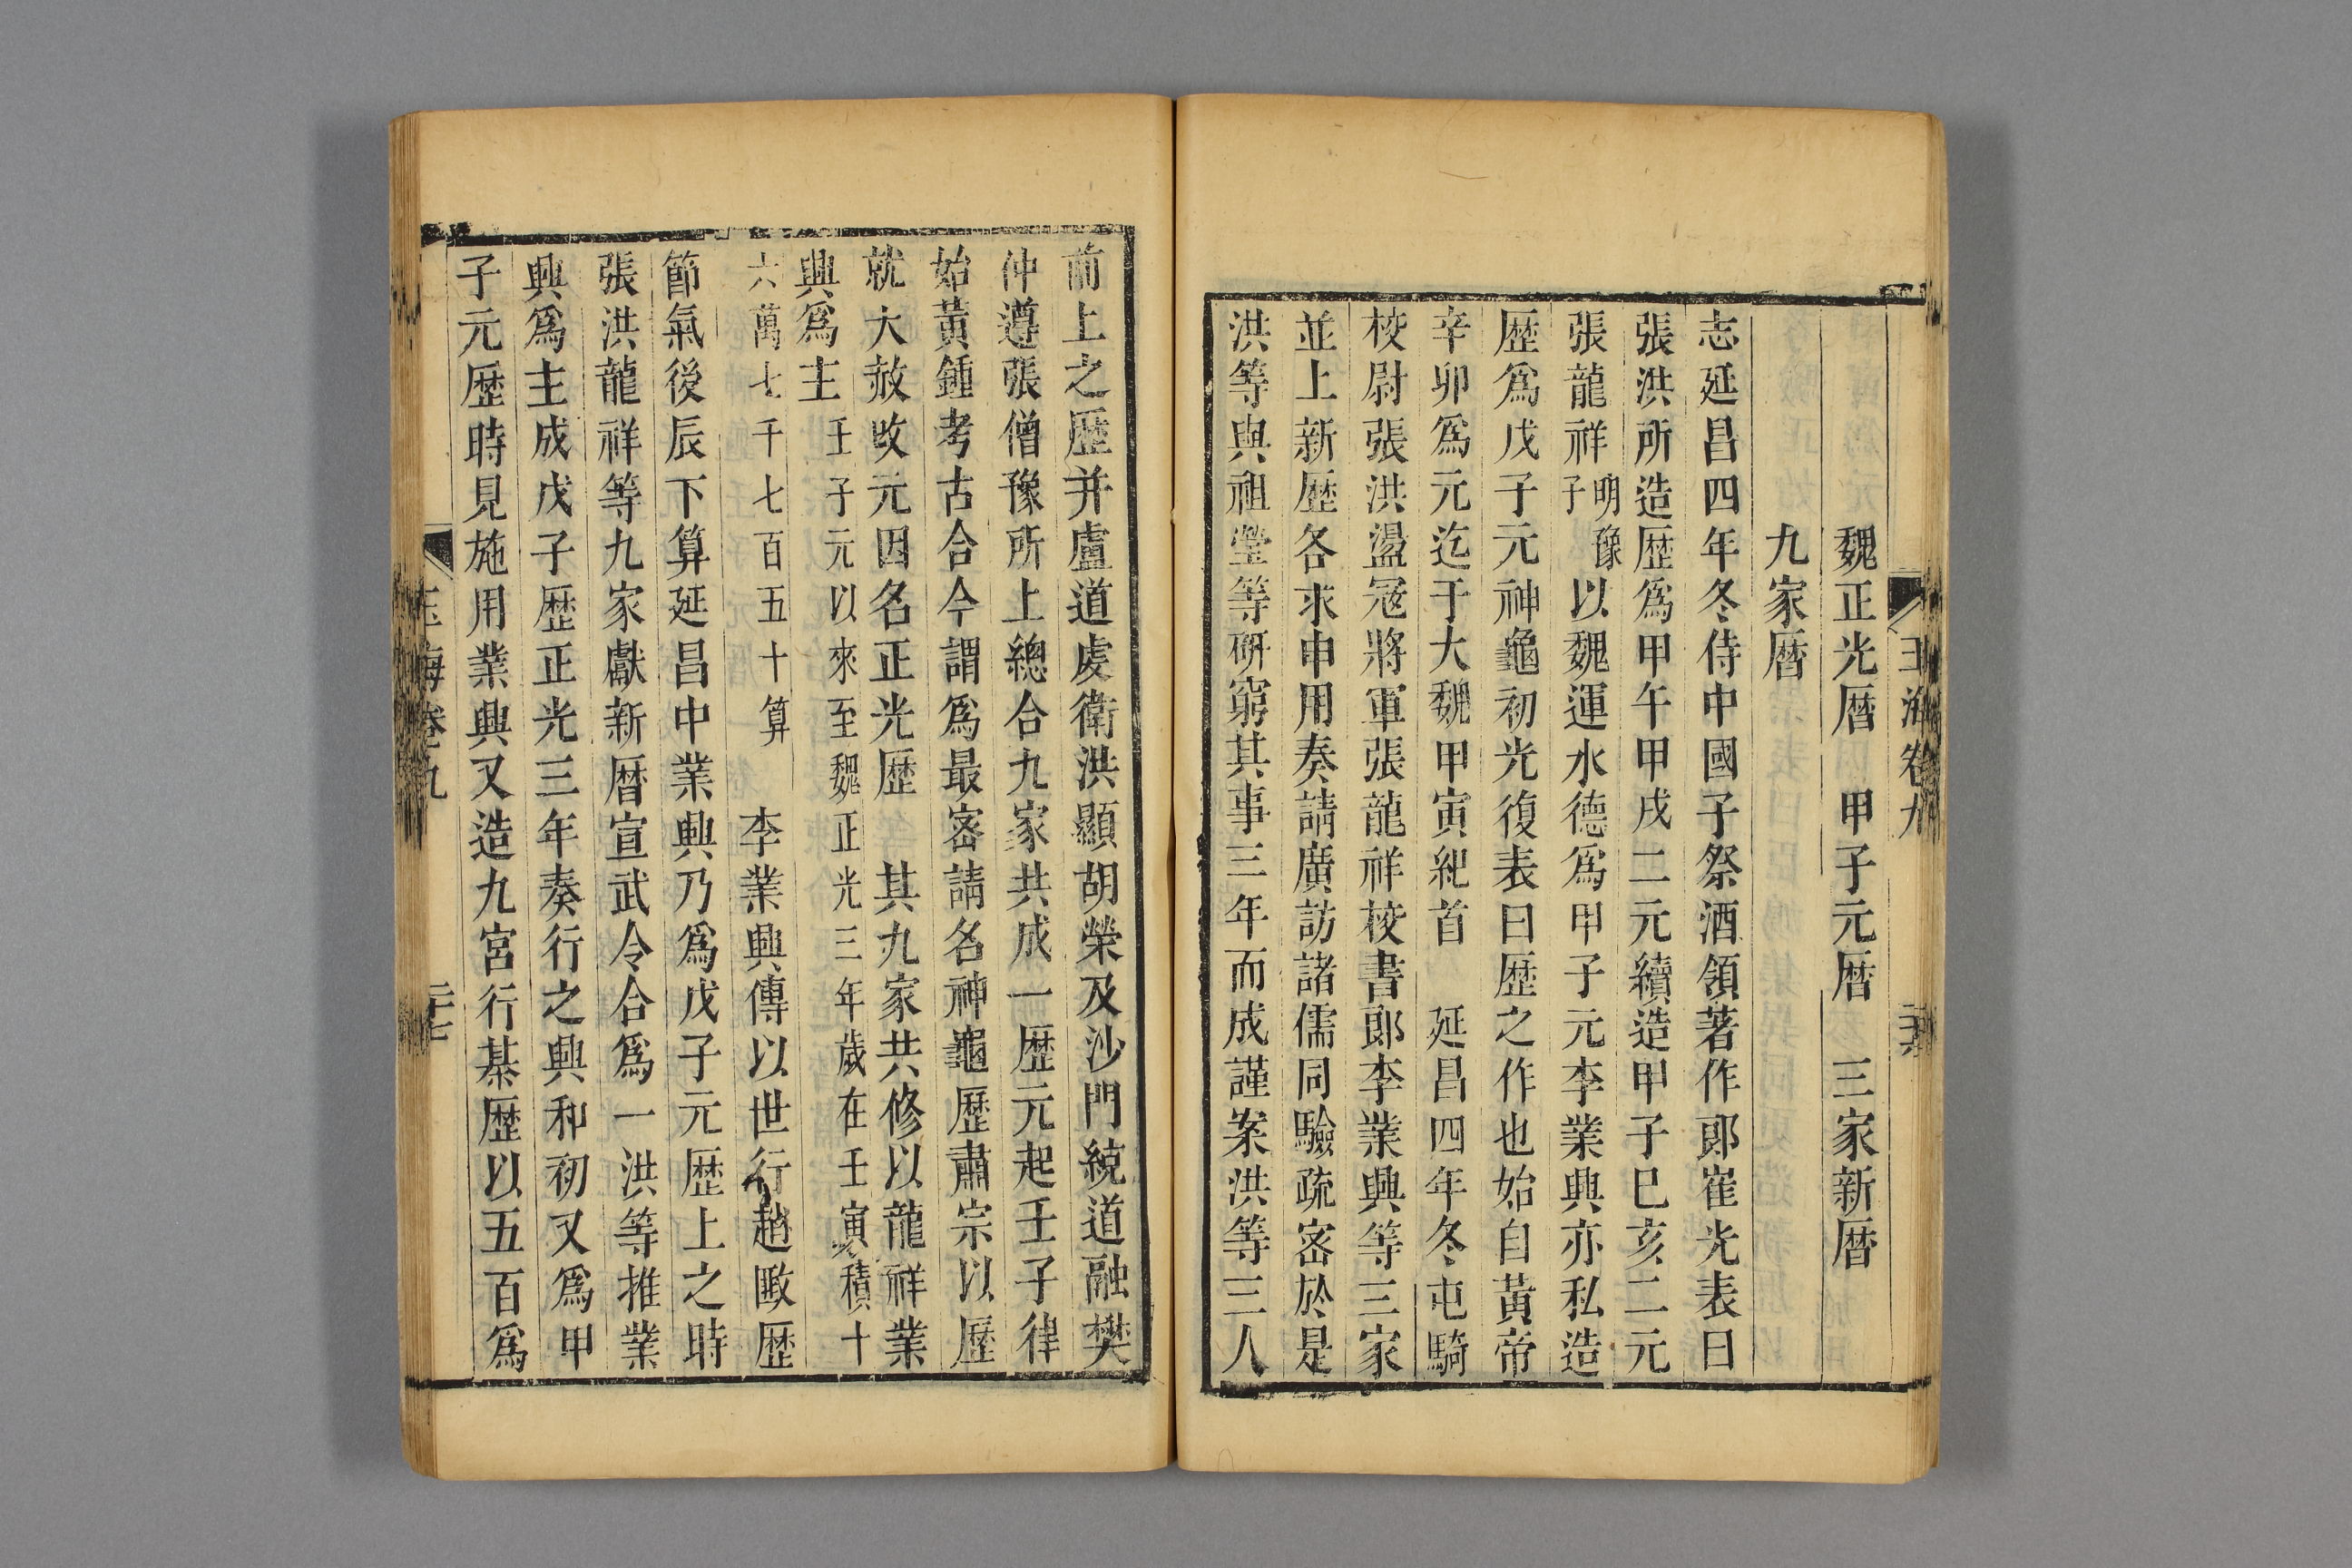 玉海卷九 二十六
魏正光曆 甲子元曆 三家新曆
九家曆
志延昌四年冬侍中國子祭酒領著作郎崔光表曰
張洪所造歷爲甲午甲戌二元續造甲子巳亥二元
張龍祥明豫子以魏運水德爲甲子元李業興亦私造
歷爲戊子元神龜初光復表曰歷之作也始自黃帝
辛卯爲元迄于大魏甲寅紀首 延昌四年冬屯騎
校尉張洪盪寇將軍張龍祥校書郎李業興等三家
並上新歷各求申用奏請廣訪諸儒同驗疏密於是
洪等與祖瑩等研窮其事三年而成謹案洪等三人
前上之歷并盧道虔衛洪顯胡榮及沙門統道融樊
仲遵張僧豫所上總合九家共成一歷元起壬子律
始黃鍾考古合今謂爲最密請名神龜歷肅宗以歷
就大赦改元因名正光歷 其九家共修以龍祥業
興爲主壬子元以來至魏正光三年歲在壬寅積十
六萬七千七百五十算 李業興傳以世行趙𢾺歷
節氣後辰下算延昌中業興乃爲戊子元歷上之時
張洪龍祥等九家獻新曆宣武令合爲一洪等推業
興爲主成戊子歷正光三年奏行之興和初又爲甲
子元歷時見施用業興又造九宮行棊歷以五百爲
玉海卷九 二十七